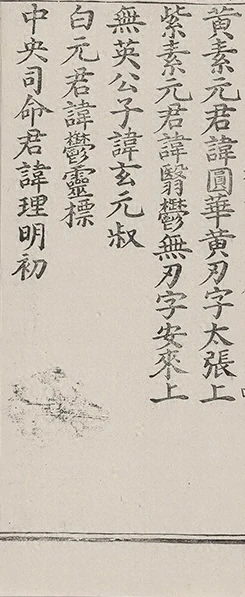 黃素元君諱圓華黃刃字太張上
紫素元君諱翳鬱無刃字安來上
無英公子諱玄元叔
白元君諱鬱靈標
中央司命君諱理明初